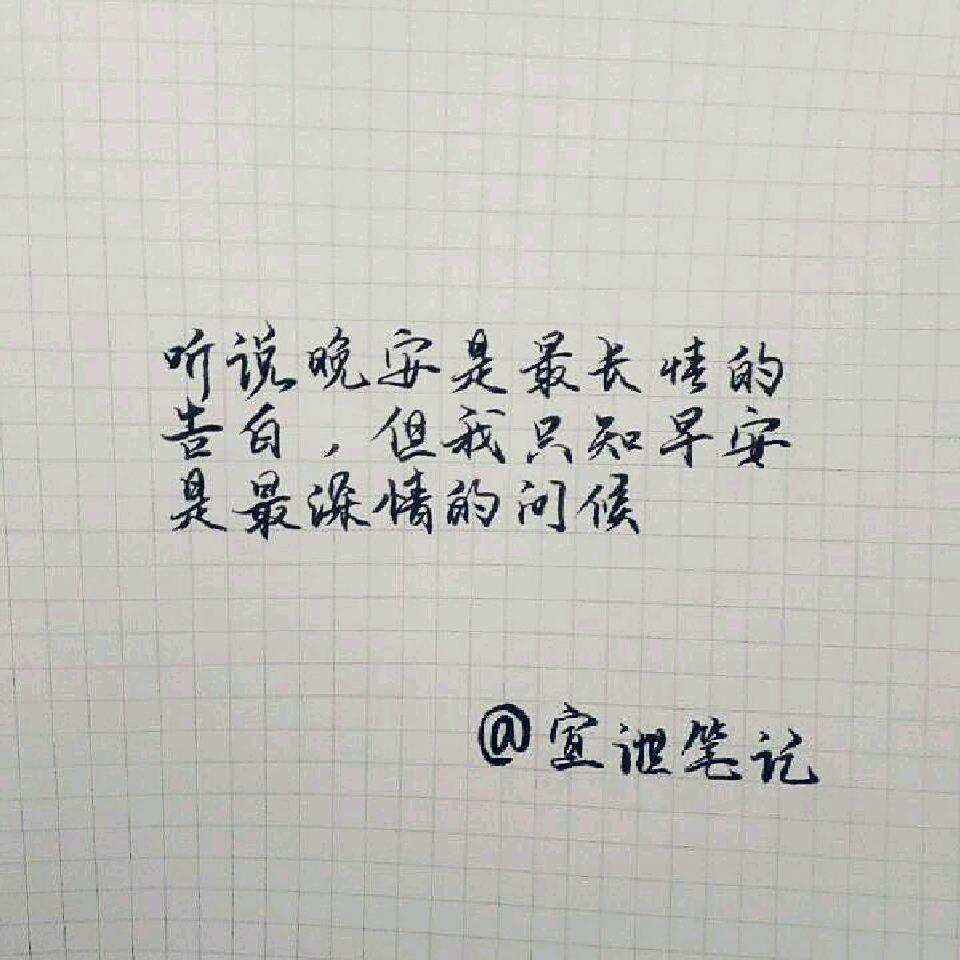 听说晚安是最长情的
告白，但我只知早安
是最深情的问候
@宣泄笔记